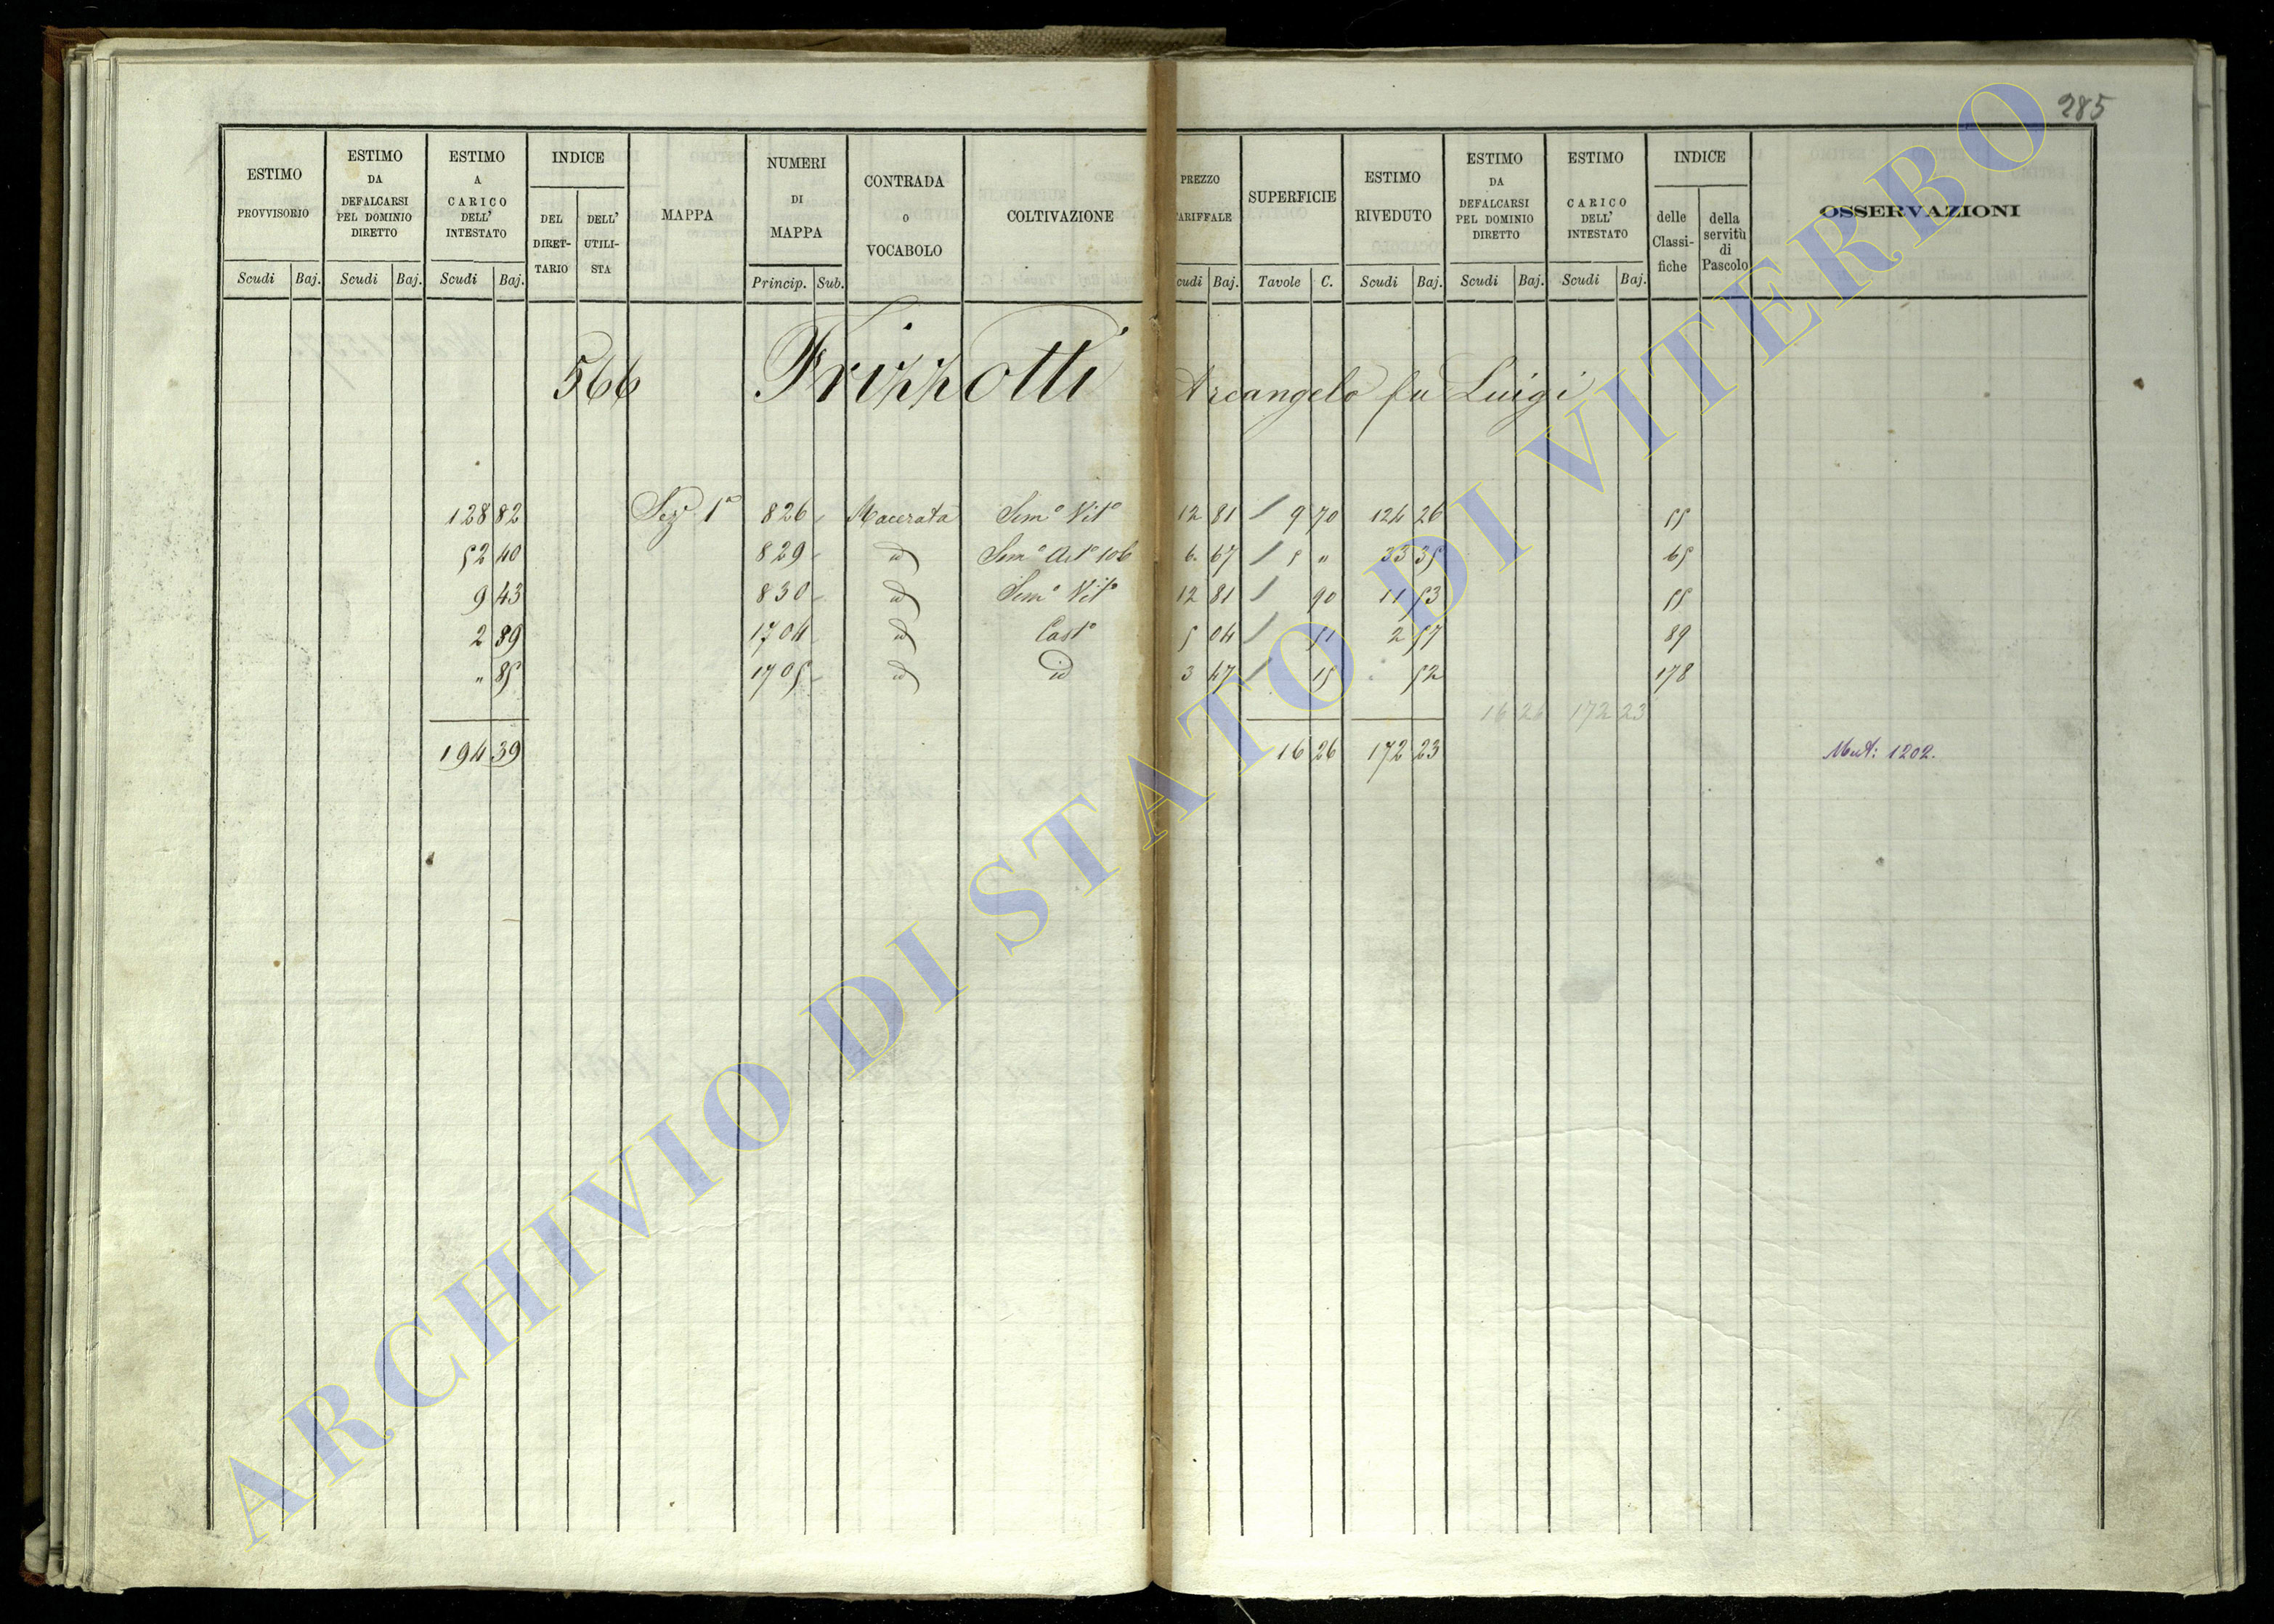 285
ESTIMO PROVVISORIO Scudi Baj.
ESTIMO DA DEFALCARSI PEL DOMINIO DIRETTO Scudi Baj.
ESTIMO A CARICO DELL' INTESTATO Scudi Baj.
INDICE DEL DIRET-TARIO DELL' UTILI-STA
MAPPA
NUMERI DI MAPPA Princip. Sub.
CONTRADA O VOCABOLO
COLTIVAZIONE
PREZZO TARIFFALE Scudi Baj.
SUPERFICIE Tavole C.
ESTIMO RIVEDUTO Scudi Baj.
ESTIMO DA DEFALCARSI PEL DOMINIO DIRETTO Scudi Baj.
ESTIMO A CARICO DELL' INTESTATO Scudi Baj.
INDICE delle Classi-fiche della servitù di Pascolo
OSSERVAZIONI
566 Frizzotti Arcangelo fu Luigi
128 82 Sez. 1a 826 Macerata Sem.o Vit.o 12 81 9 70 124 26 55
52 40 829 id Sem.o Art.o 106 6 67 5 " 33 35 65
9 43 830 id Sem.o Vit.o 12 81 90 11 53 55
2 89 1704 id Cast.o 5 04 51 2 57 89
" 85 1705 id id 3 47 15 52 178
16 26 172 23
194 39 16 26 172 23 Mut: 1202.
ARCHIVIO DI STATO DI VITERBO